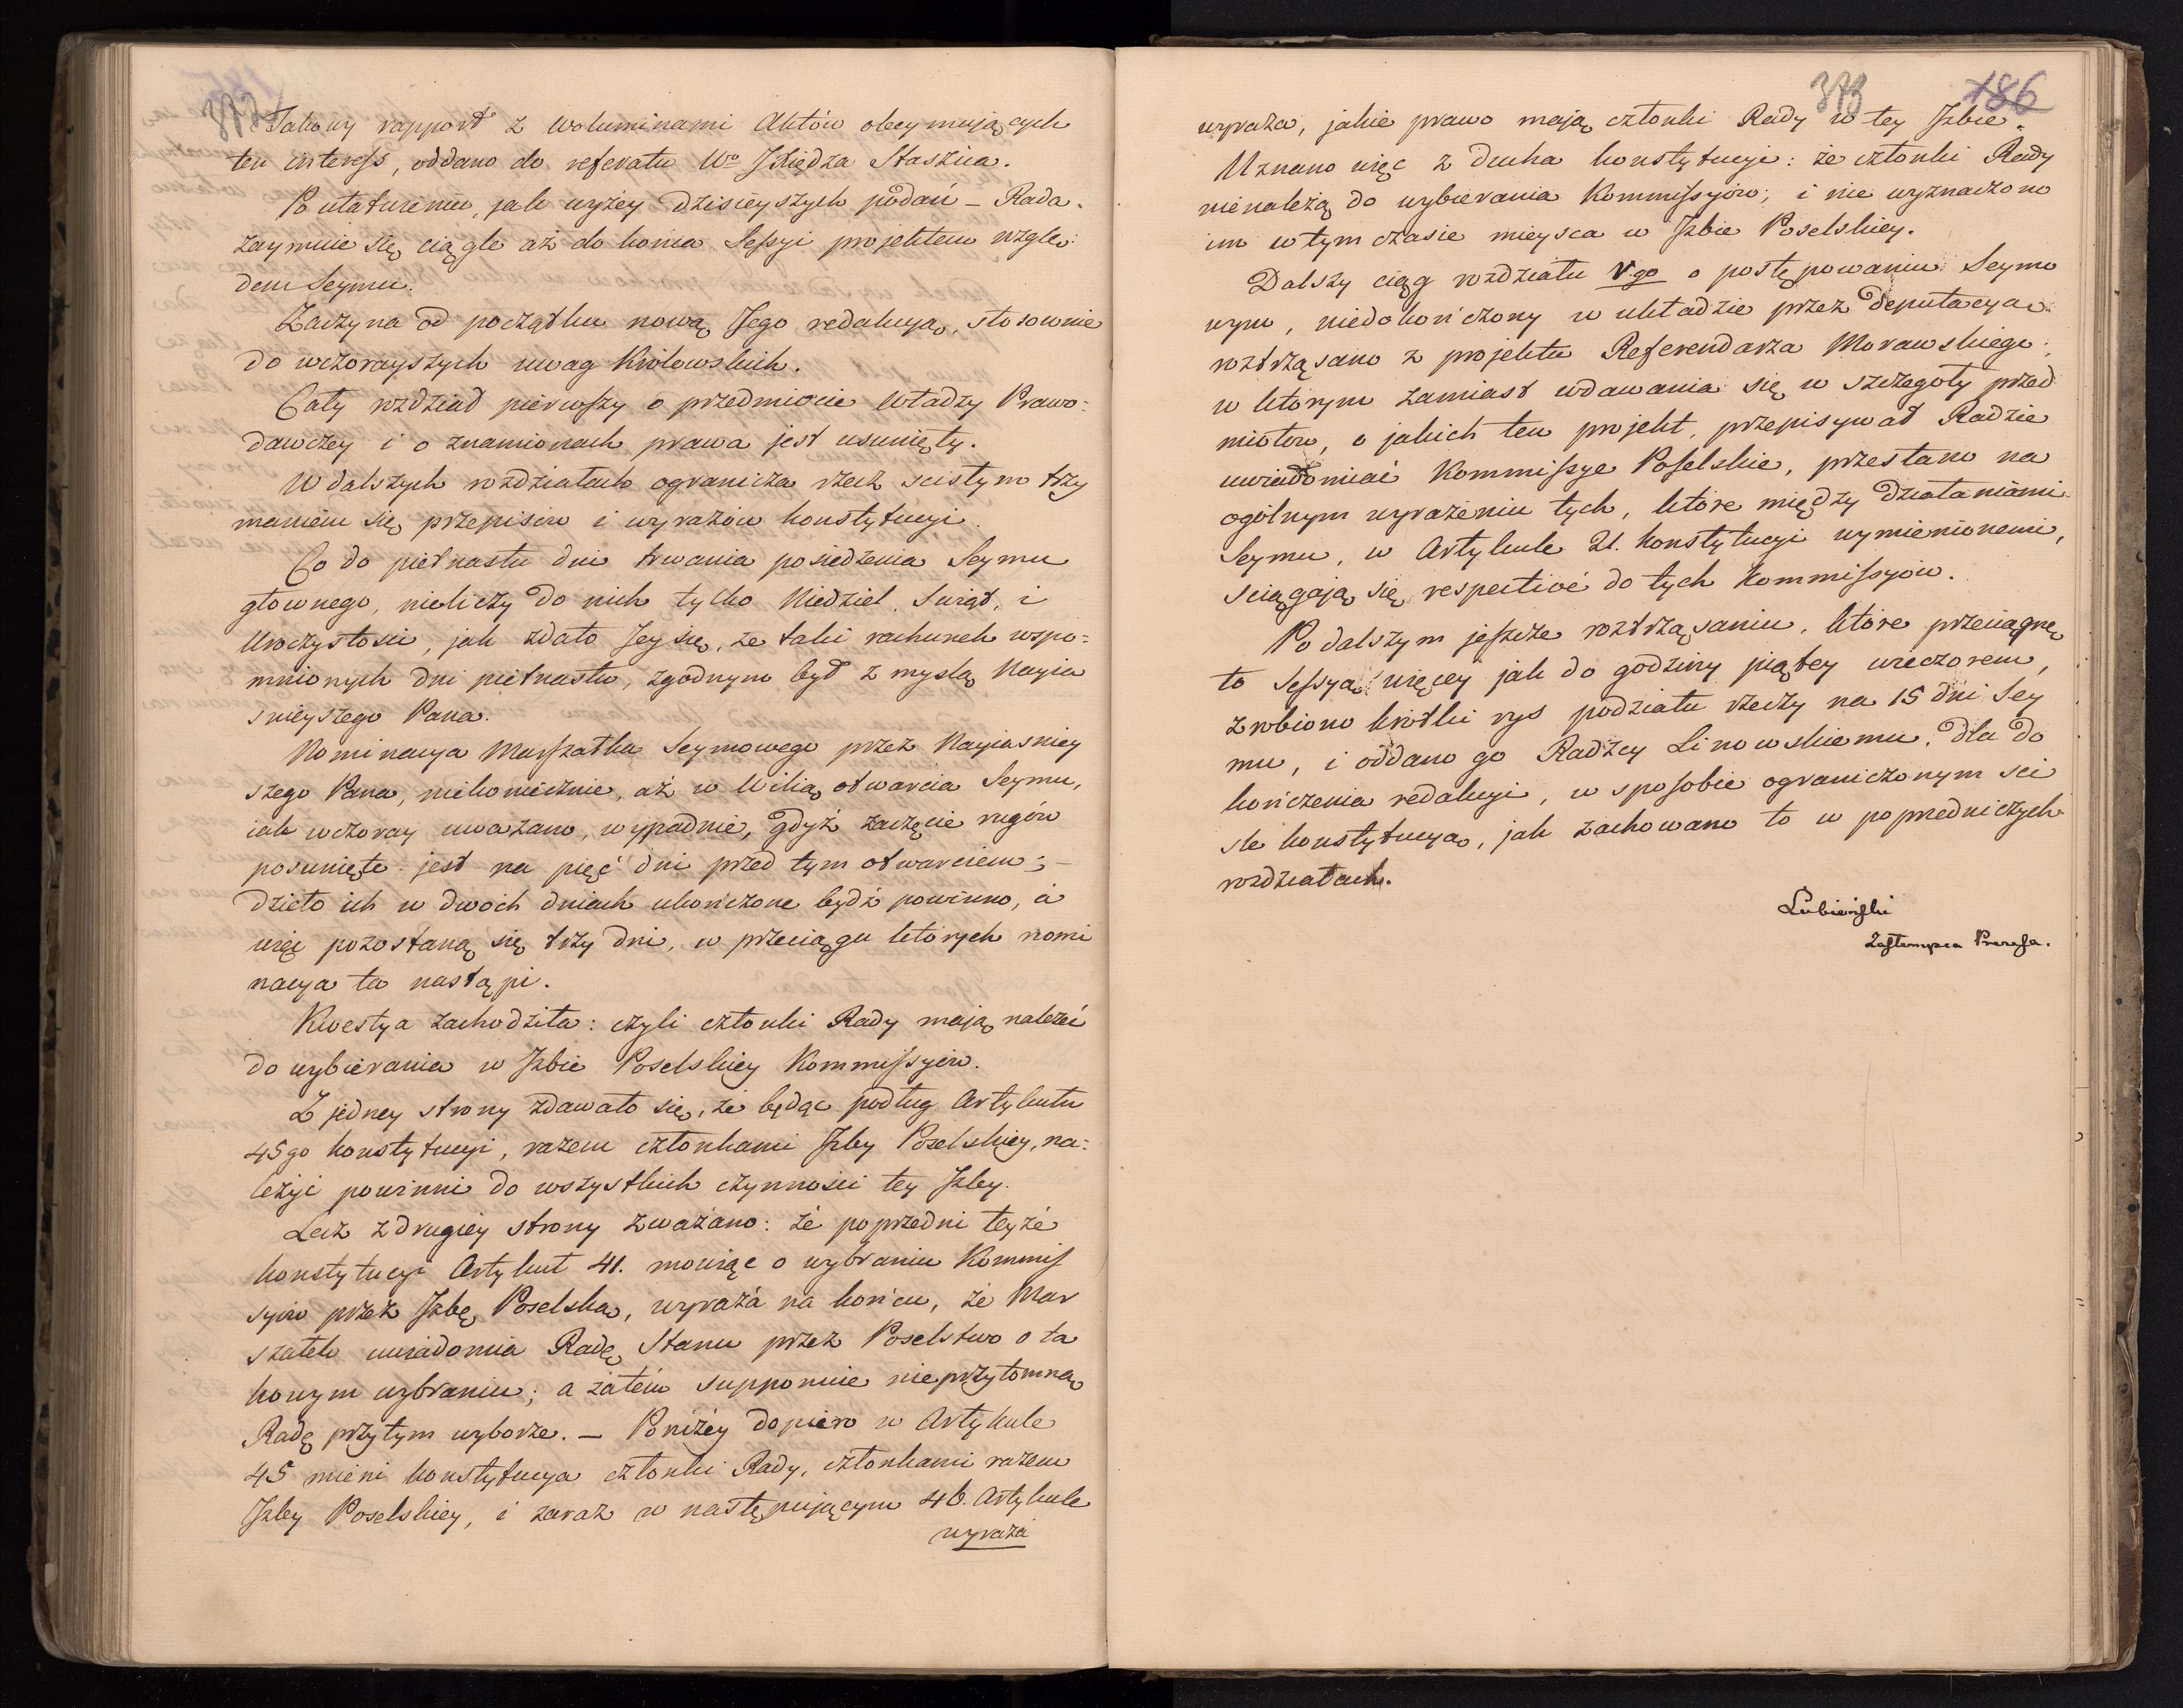 372
Takowy rapport z woluminami Aktów obeymujących
ten interess, oddano do referatu Wo JXiędza Staszica.
Po ułatwieniu, jak wyżey dzisieyszych podań – Rada
zaymuie się ciągle aż do końca Sessyi projektem wzglę:
dem Seymu.
Zaczyna od początku nową Jego redakcyą, stosownie
do wczorayszych uwag Królewskich.
Cały rozdział pierwszy o przedmiocie Władzy Prawo:
dawczey i o znamionach prawa jest usunięty.
W dalszych rozdziałach ogranicza rzecz scisłym trzy
maniem się przepisów i wyrazów konstytucyi.
Co do pietnastu dni trwania posiedzenia Seymu
głownego, nieliczy do nich tylko Niedziel, Swiąt, i
Uroczystosci, jak zdało Jey się, że taki rachunek wspo:
mnionych dni pietnastu, zgodnym był z myslą Nayia
snieyszego Pana.
Nominacya Marszałka Seymowego przez Nayiasniey
szego Pana, niekoniecznie, aż w Wilią otwarcia Seymu,
iak wczoray uważano, wypadnie, gdyż zaczęcie rugów
posunięte jest na pięć dni przed tym otwarciem; –
dzieło ich w dwóch dniach ukończone bydź powinno, a
więc pozostaną się trzy dni, w przeciągu których nomi
nacya ta nastąpi.
Kwestya zachodziła: czyli członki Rady mają należeć
do wybierania w Izbie Poselskiey Kommissyów.
Z jedney strony zdawało się, że będąc podług Artykułu
45go konstytucyi, razem członkami Izby Poselskiey, na:
leżyć powinni do wszystkich czynności tey Izby.
Lecz z drugiéy strony zważano: że poprzedni teyże
konstytucyi Artykuł 41. mówiąc o wybraniu Kommis
syów przez Izbę Poselską, wyraża na końcu, że Mar
szałek uwiadomia Radę Stanu przez Poselstwo o ta
kowym wybraniu; a zatém supponuie nieprzytomną
Radę przytym wyborze. – Poniżéy dopiero w Artykule
45 mieni konstytucya członki Rady, członkami razem
Izby Poselskiey, i zaraz w następującym 46. Artykule
wyraża
373
186
wyraża, jakie prawo mają członki Rady w tey Izbie.
Uznano więc z ducha konstytucyi: że członki Rady
nienależą do wybierania Kommissyów; i nie wyznaczono
im w tym czasie mieysca w Izbie Poselskiey.
Dalszy ciąg rozdziału V.go o postępowaniu Seymo
wym, niedokończony w układzie przez Deputacyą
roztrząsano z projektu Referendarza Morawskiego;
w którym zamiast wdawania się w szczegoły przed
miotów, o jakich ten projekt, przepisywał Radzie
uwiadomiać Kommissye Poselskie, przestano na
ogólnym wyrażeniu tych, które między działaniami
Seymu, w Artykule 21. konstytucyi wymienionemi,
sciągają się respectivé do tych Kommissyów.
Po dalszym jeszcze roztrząsaniu, które przeciągnę
ło Sessyą więcey jak do godziny piątey wieczorem,
zrobiono krótki rys podziału rzeczy na 15 dni Sey
mu, i oddano go Radzcy Linowskiemu, dla do
kończenia redakcyi, w sposobie ograniczonym sci
śle konstytucyą, jak zachowano to w poprzedniczych
rozdziałach.
Lubieński
Zastempca Prezesa.